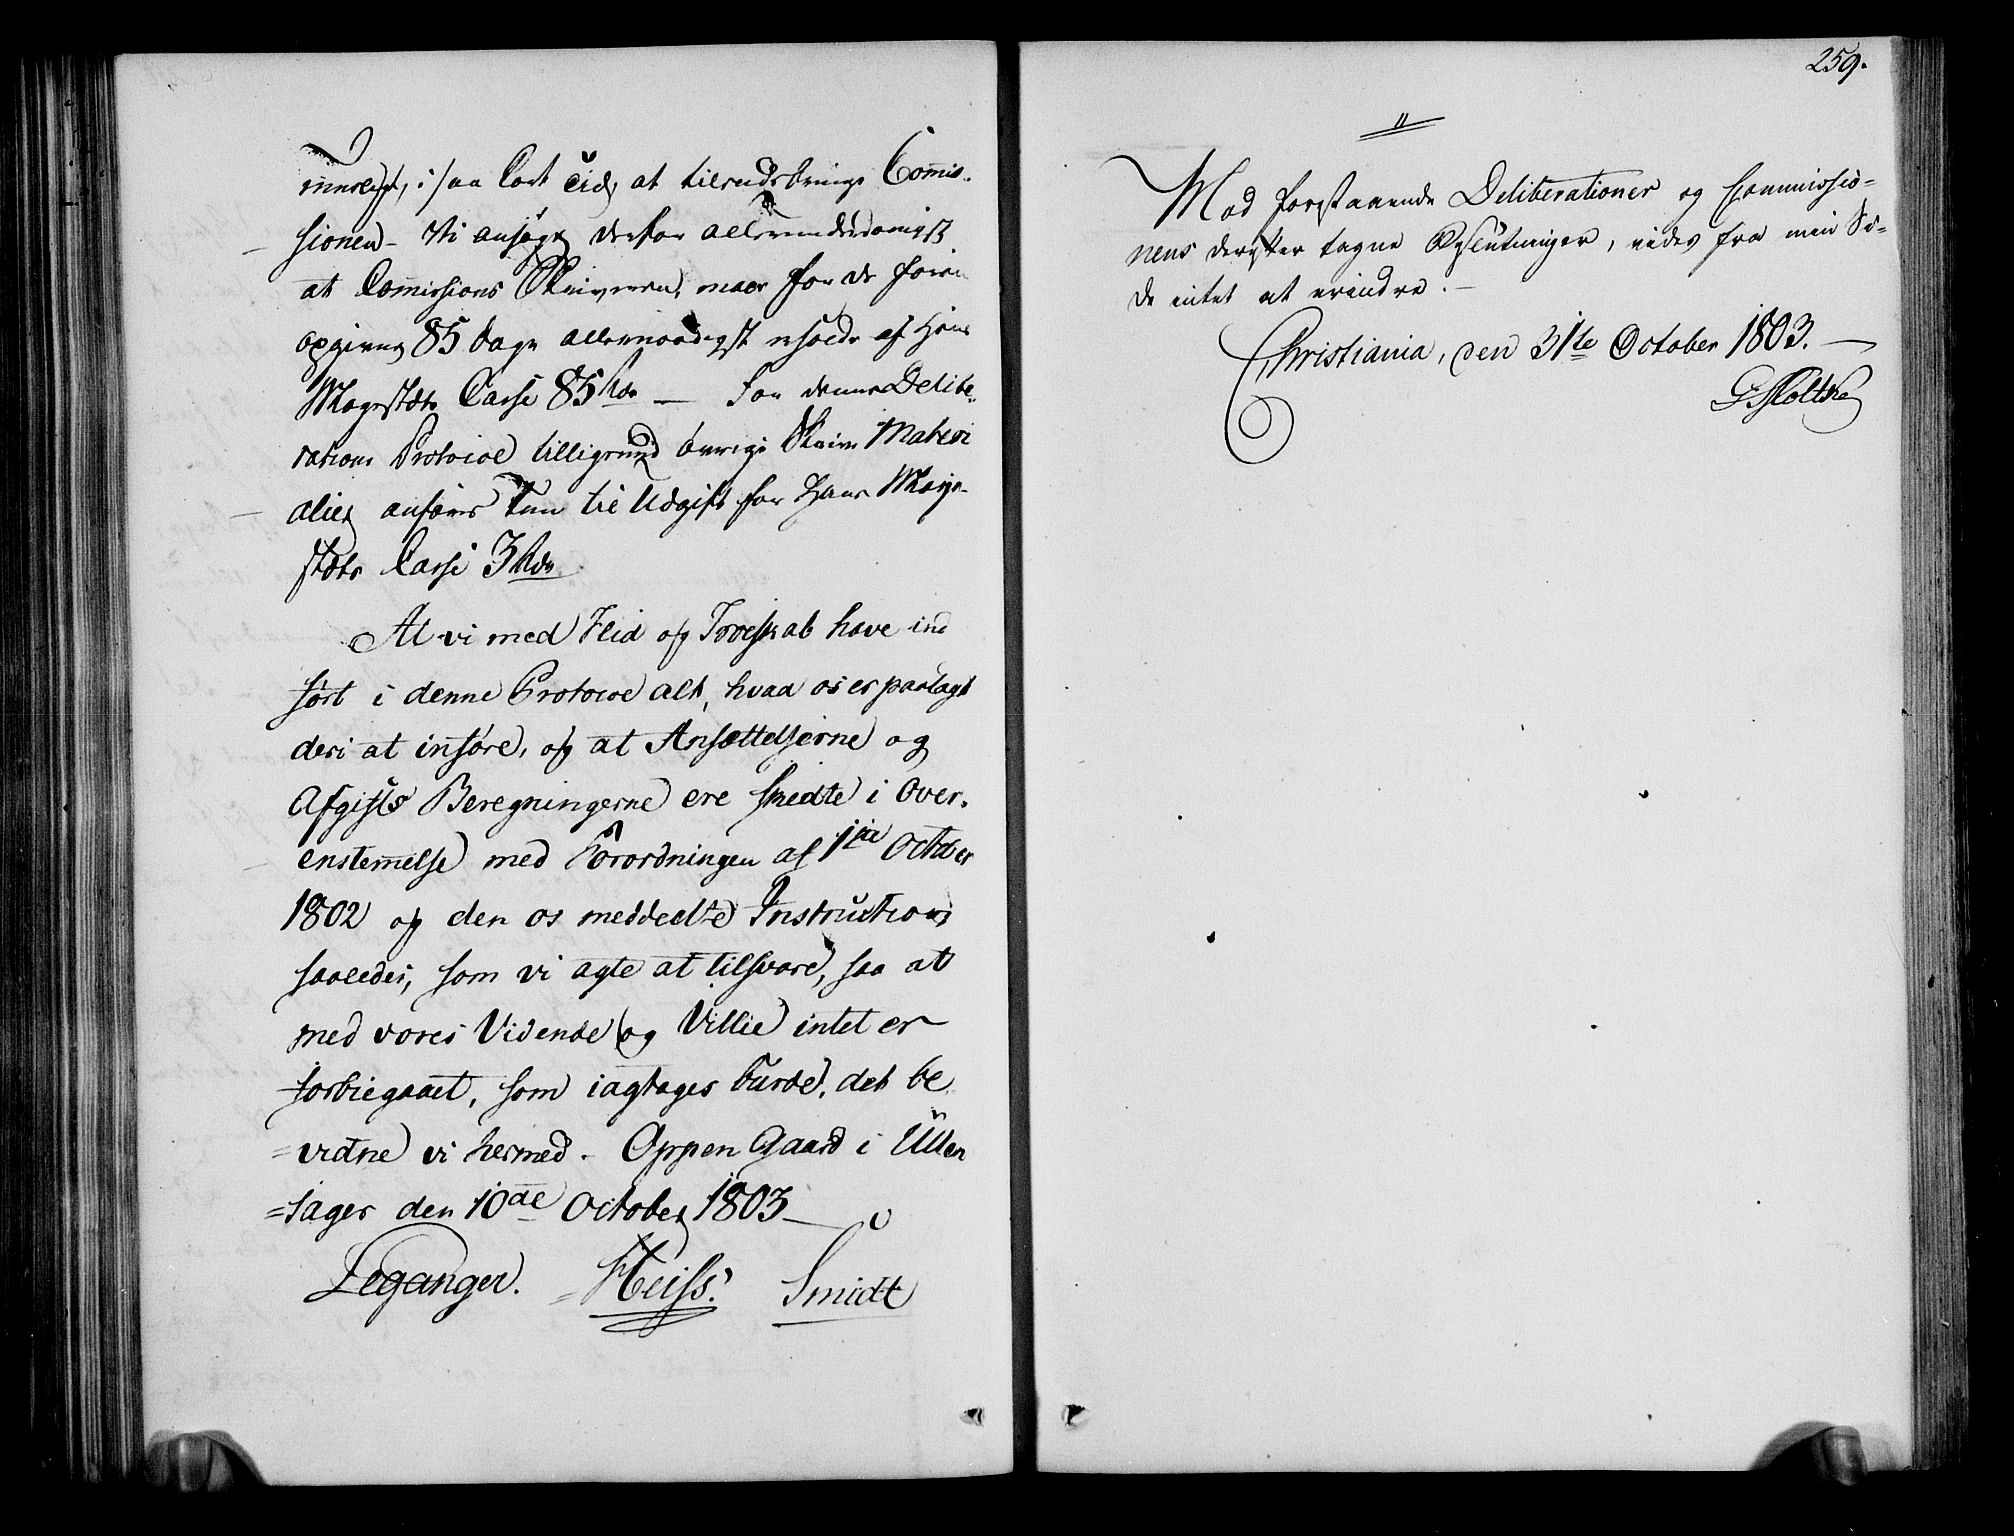 mueligt, i saa kort Tid, at tilendebringe Commis-
sionen - Vi ansøge derfor allerunderdanigst
at Commissions Skriveren, maae for de foran
opgivne 85 Dage allernaadigst nyde af Hans
Majestæts Casse 85 Rdr — For denne Delibe-
rations Protocol tilligemed øvrige Skrive Materi
alier anføres kun til Udgift for Hans Maje-
stæts Casse 3 Rdr
At vi med Flid og Troeskab have ind
ført i denne Protocol alt, hvad os er paalagt
deri at inføre, og at Ansættelserne og
Afgifts Beregningerne ere skeedte i Over-
enstemelse med Forordningen af 1ste October
1802 og den os meddeelte Instruction
saaledes, som vi agte at tilsvare, saa at
med vores Vidende og Villie intet er
forbiegaaet, som iagtages burde, det be
=vidne vi hermed - Oppen Gaard i Ullen
=sager den 10de October 1803 —
Leganger. Heiss. Smidt
259.
"
Mod forestaaende Deliberationer og Commissio=
nens derefter tagne Beslutninger, vides fra min Si=
de intet at erindre. -
Christiania, den 31te October 1803. —
G Moltke